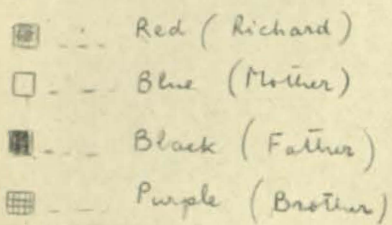 Red (Richard)
Blue (Mother)
Black (Father)
Purple (Brother)